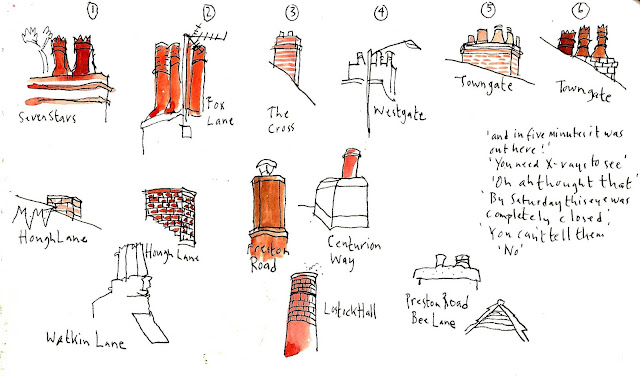 1 2 3 4 5 6
Seven Stars
Fox
Lane
The
Cross
Westgate
Towngate
Towngate
'and in five minutes it was
out here!'
'You need X-rays to see'
'Oh ah thought that'
'By Saturday this eye was
completely closed'
'You can't tell them
'No'
Hough Lane
Hough Lane
Preston
Road
Centurion
Way
Watkin Lane
Lostock Hall
Preston Road
Bee Lane